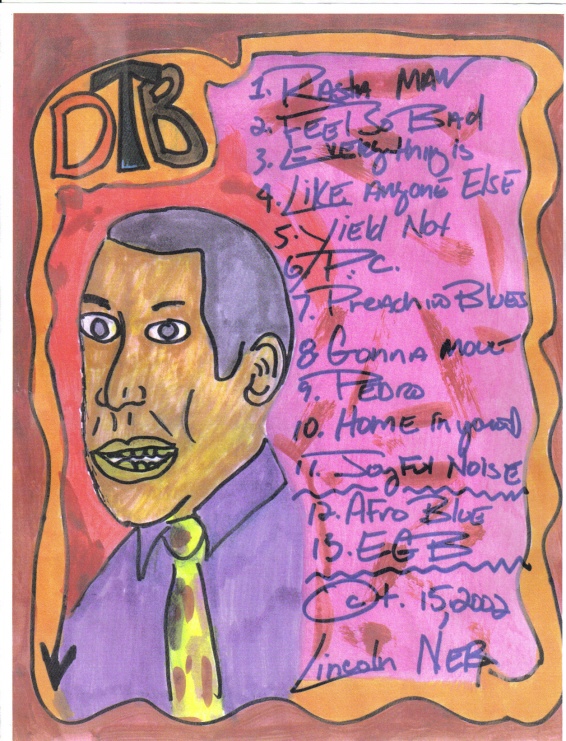 DTB
1. Rasta MAN
2. FEEl So Bad
3. EVERythIng is
4. LIKE Anyone ElSE
5. Yield Not
6. P.C.
7. Preachin Blues
8 Gonna move
9. PEDRO
10. HOME in you
11. Joyful NoiSE
12. AFro BluE
13. EGB
Oct. 15, 2002
Lincoln NEB